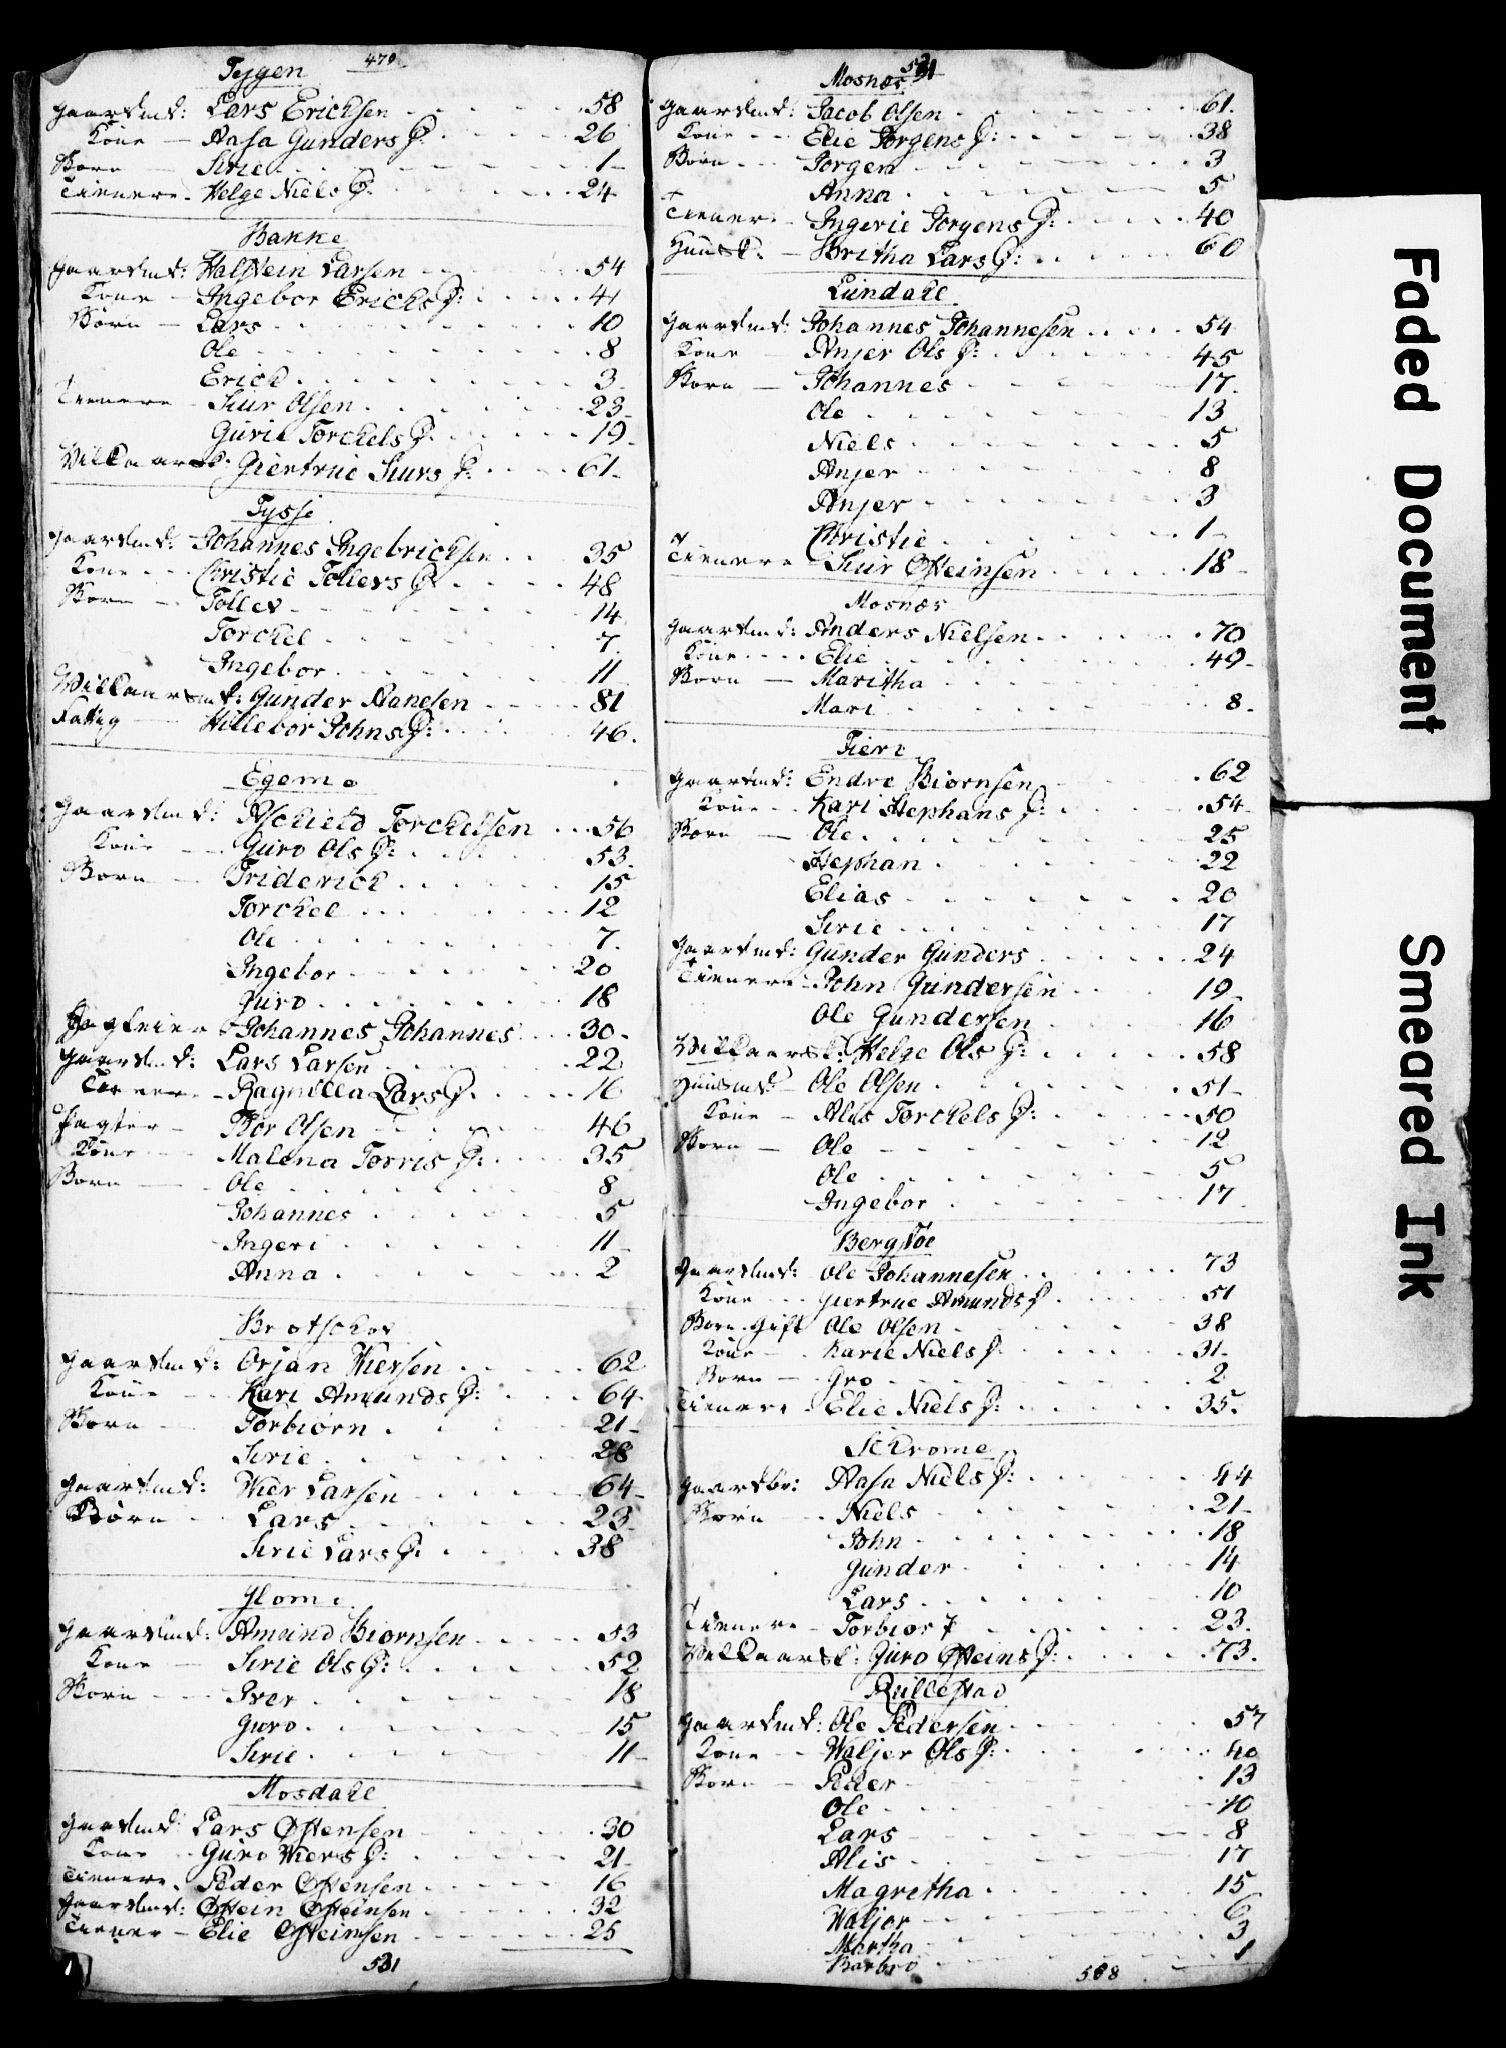 470
Tejgen
Gaardmd: Lars Ericksen 58
Kone Aasa Gunders D. 26
Børn Sirie 1
Tienere Helge Niels D. 24
Bakke
Gaardmd: Halstein Larsen 54
Kone Ingebor Ericks D: 41
Børn Lars 10
Ole 8
Erick 3
Tienere Siur Olsen 23
Gurie Torckels D. 19
Vilkaarsk: Giertrue Siurs D. 61
Tysse
Gaardmd: Johannes Ingebricksen 35
Kone Christie Tollevs D. 48
Børn Tollev 14
Torckel 7
Ingebor 11
Vilkaarsmd: Gunder Aanesen 81
Fattig Hillebor Johns D: 46
Egeme
Gaardmd: Aschield Torckelsen 56
Kone Guro Ols D: 53
Børn Friderick 15
Torckel 12
Ole 7
Ingebor 20
Guro 18
Johannes Johannes 30
Gaardmd: Lars Larsen 22
Tienere Ragnilla Lars D. 16
Pagter Thor Olsen 46
Kone Malena Torris D: 35
Børn Ole 8
Johannes 5
Ingeri 11
Anna 2
Brotschov
Gaardmd: Orjan Wiersen 62
Kone Kari Amunds D: 64
Børn Torbiørn 21
Sirie 28
Gaardmd: Wier Larsen 64
Børn Lars 23
Sirie Lars D. 38
Glome
Gaardmd: Amund Biornsen 53
Kone Sirie Ols D: 52
Børn Iver 18
Guro 15
Sirie 11
Mosdale
Gaardmd: Lars Østensen 30
Kone Guro Wiers D: 21
Tienere Peder Østensen 16
Gaardmd: Østein Østeinsen 32
Tiener Elie Østeinsen 25
531
531
Mosnæs
Gaardmd: Jacob Olsen 61
Kone Elie Jorgens D: 38
Børn Jorgen 3
Anna 5
Tiener Ingerie Jorgens D: 40
Huusk. Britha Lars D: 60
Lundale
Gaardmd: Johannes Johannesen 54
Kone Anjer Ols D: 45
Børn Johannes 17
Ole 13
Niels 5
Anjer 8
Anjer 3
Christie 1
Tienere Siur Østeinsen 18
Mosnæs
Gaardmd: Anders Nielsen 70
Kone Elie 49
Børn Maritha
Mari 8
Fieri
Gaardmd: Endre Biornsen 62
Kone Kari Stephans D: 54
Børn Ole 25
Stephan 22
Elias 20
Sirie 17
Gaardmd: Gunder Gunders 24
Tienere John Gundersen 19
Ole Gundersen 16
Vilkaarsk: Helge Ols D: 58
Huusmd Ole Olsen 51
Kone Alis Torckels D: 50
Børn Ole 12
Ole 5
Ingebor 17
Bergstøe
Gaardmd: Ole Johannesen 73
Kone Giertrue Amunds D 51
Børn gift Ole Olsen 38
Kone Karie Niels D. 31
Børn Gro 2
Tienere Elie Niels D. 35
Schrome
Gaardbr: Aasa Niels D: 44
Børn Niels 21
John 18
Gunder 14
Lars 10
Tienere Torbior 23
Vilkaarsk: Guro Østeins D: 73
Rullestad
Gaardmd: Ole Pedersen 57
Kone Waljer Ols D: 40
Børn Peder 13
Ole 10
Lars 8
Alis 17
Magretha 15
Waljor 6
Martha 3
Barbro 1
568
Faded Document
Smeared Ink